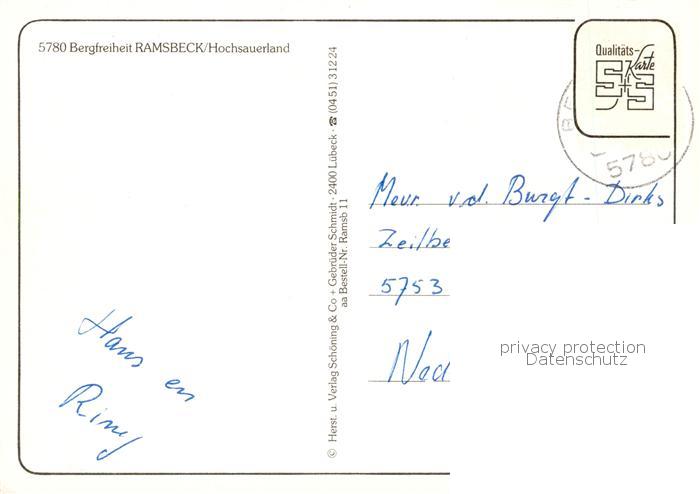 5780 Bergfreiheit RAMSBECK/Hochsauerland
Qualitäts-
Karte
S+S
5780
Mevr. v.d. Burgt - Dirks
Zeilbe
5753
Ned
privacy protection
Datenschutz
Hans en
© Herst. u. Verlag Schöning & Co + Gebrüder Schmidt · 2400 Lübeck · ☎ (04 51) 3 12 24
aa Bestell-Nr. Ramsb 11